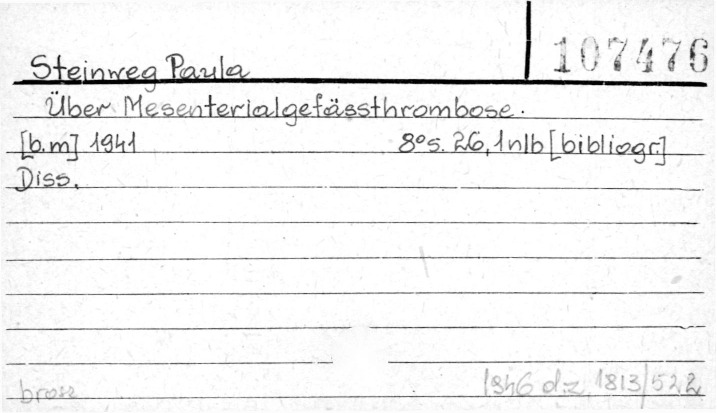 107476
Steinweg Paula
Über Mesenterialgefässthrombose.
[b.m] 1941 8°s. 26, 1nlb [bibliogr.]
Diss.
brosz 1946 dz 1813/522